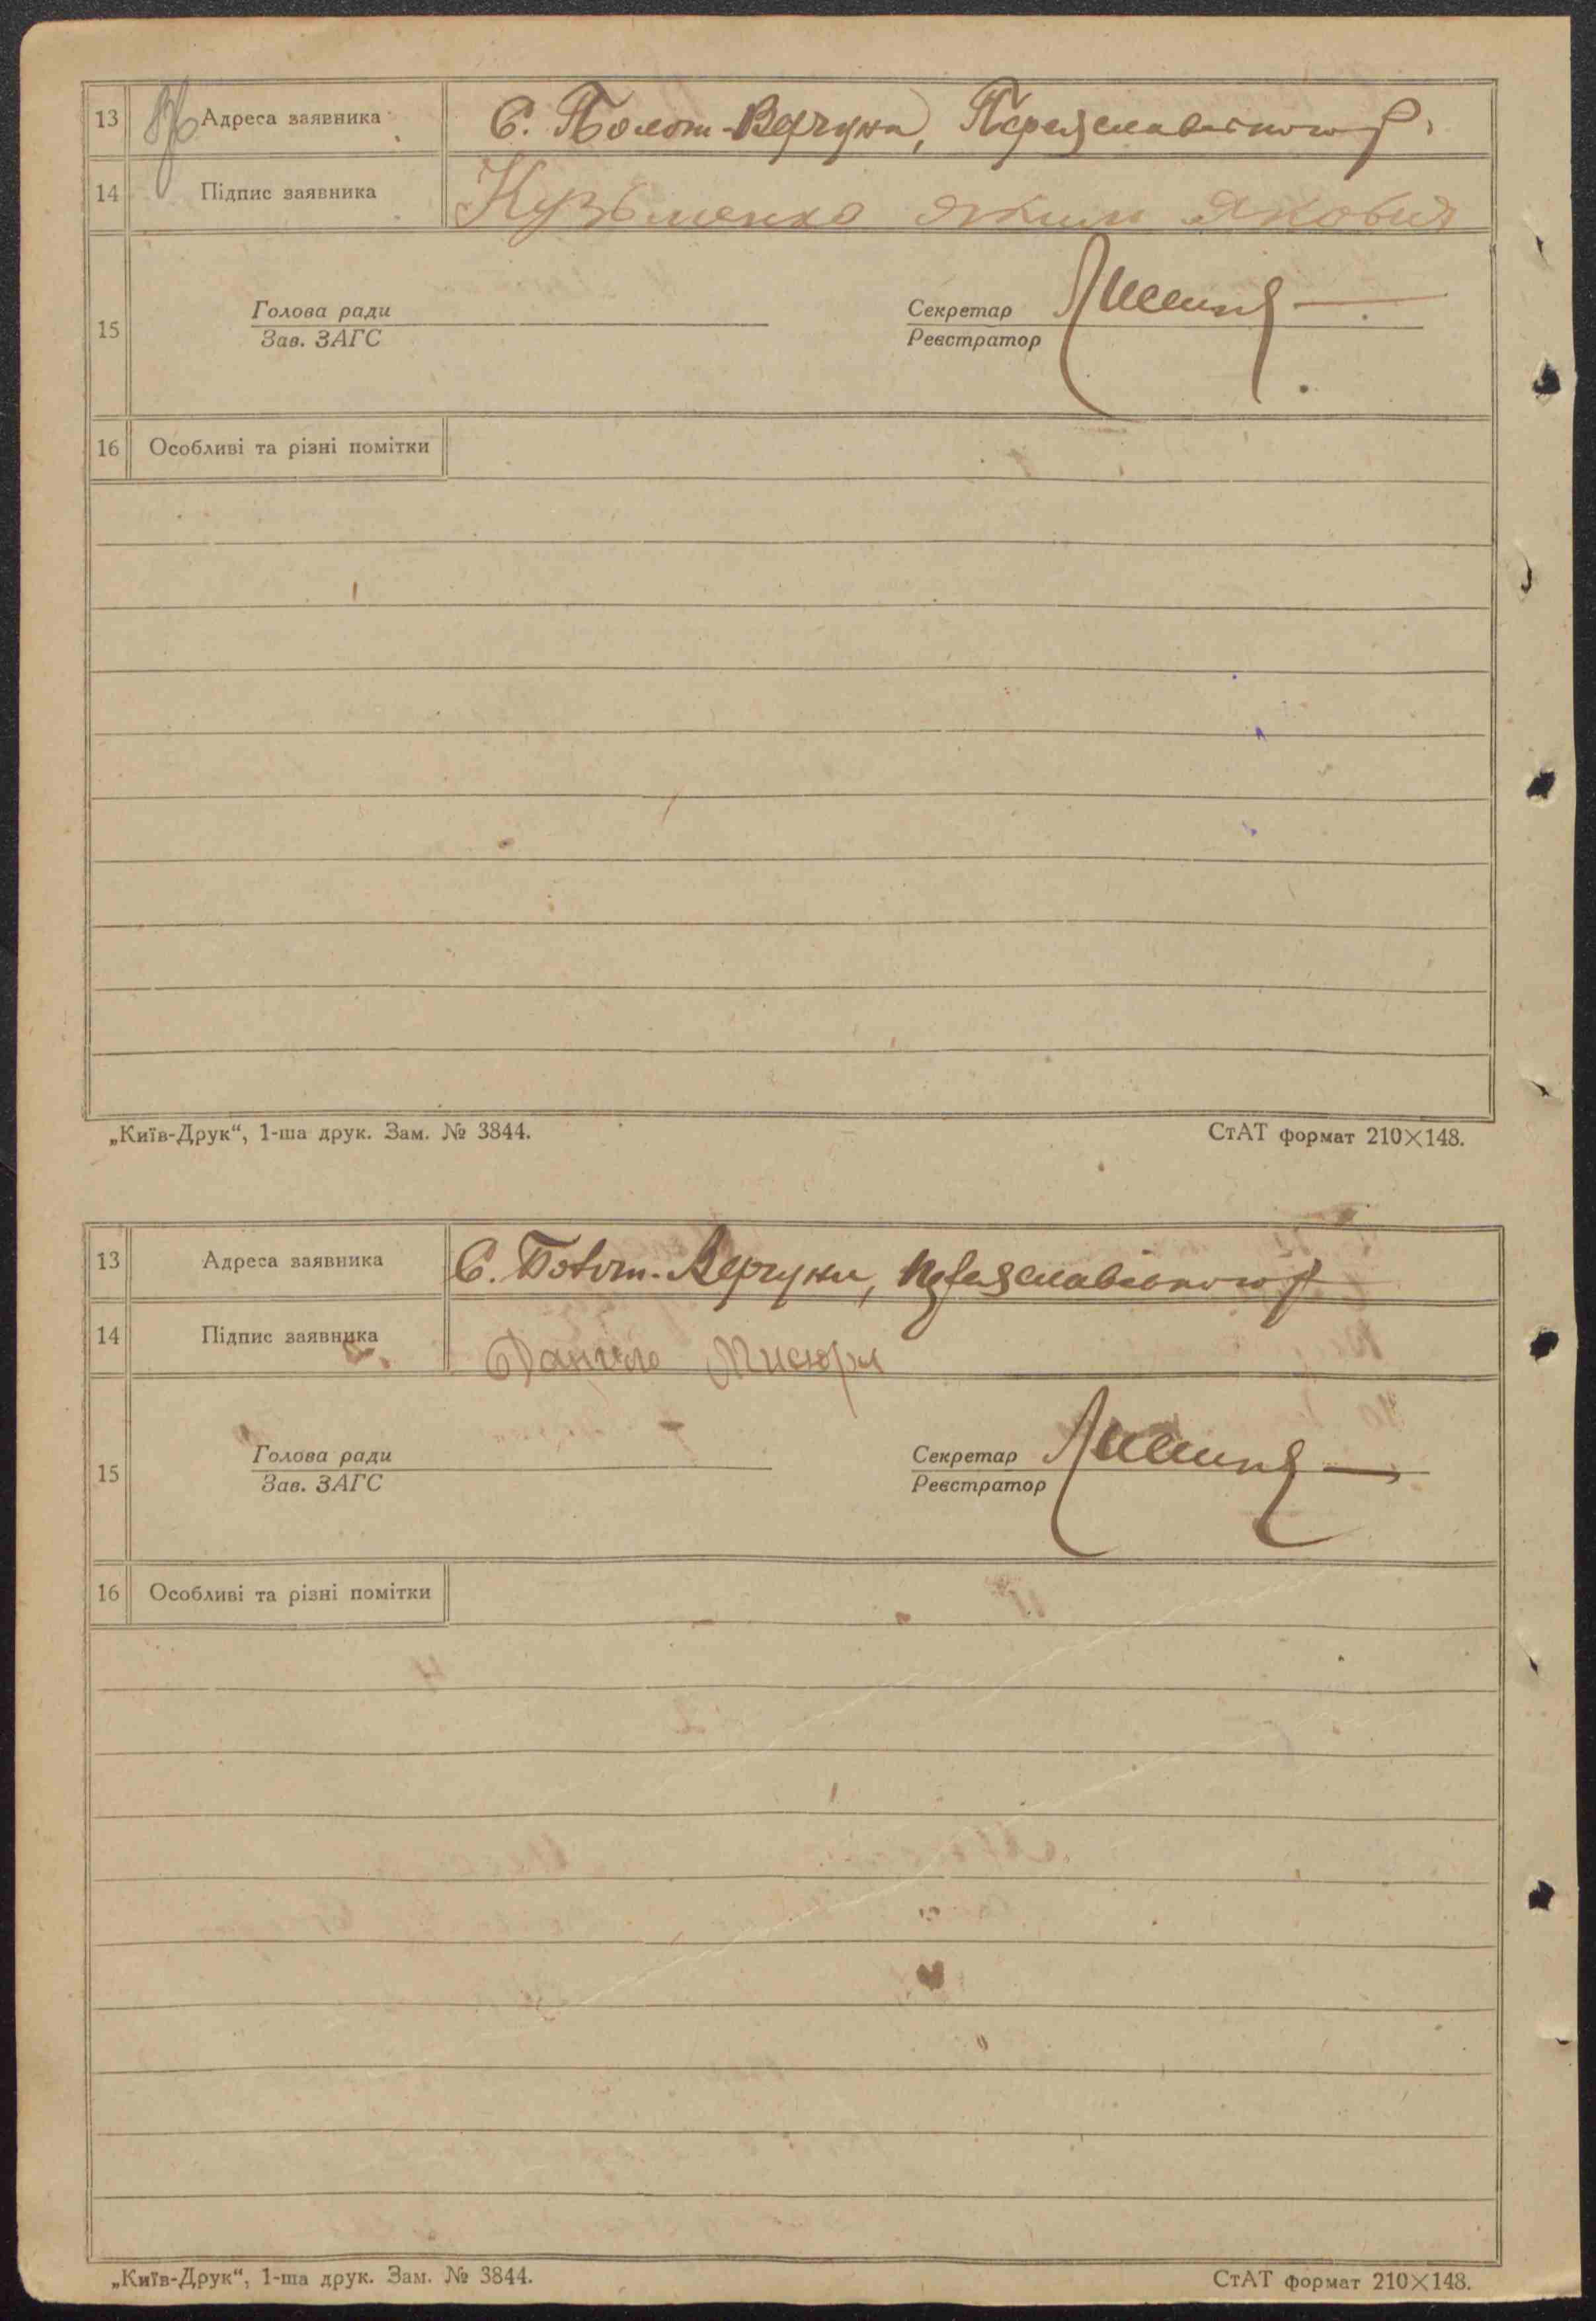 13 Адреса заявника С. Полот-Вергуни, Переяславського р.
14 Підпис заявника Кузьменко Яким Якович
Голова ради Секретар
15
Зав. ЗАГС Реєстратор
16 Особливі та різні помітки
„Київ-Друк“, 1-ша друк. Зам. № 3844. СтАТ формат 210×148.
13 Адреса заявника С. Полот-Вергуни, Переяславського р
14 Підпис заявника Данило Мисюра
Голова ради Секретар
15
Зав. ЗАГС Реєстратор
16 Особливі та різні помітки
„Київ-Друк“, 1-ша друк. Зам. № 3844. СтАТ формат 210×148.